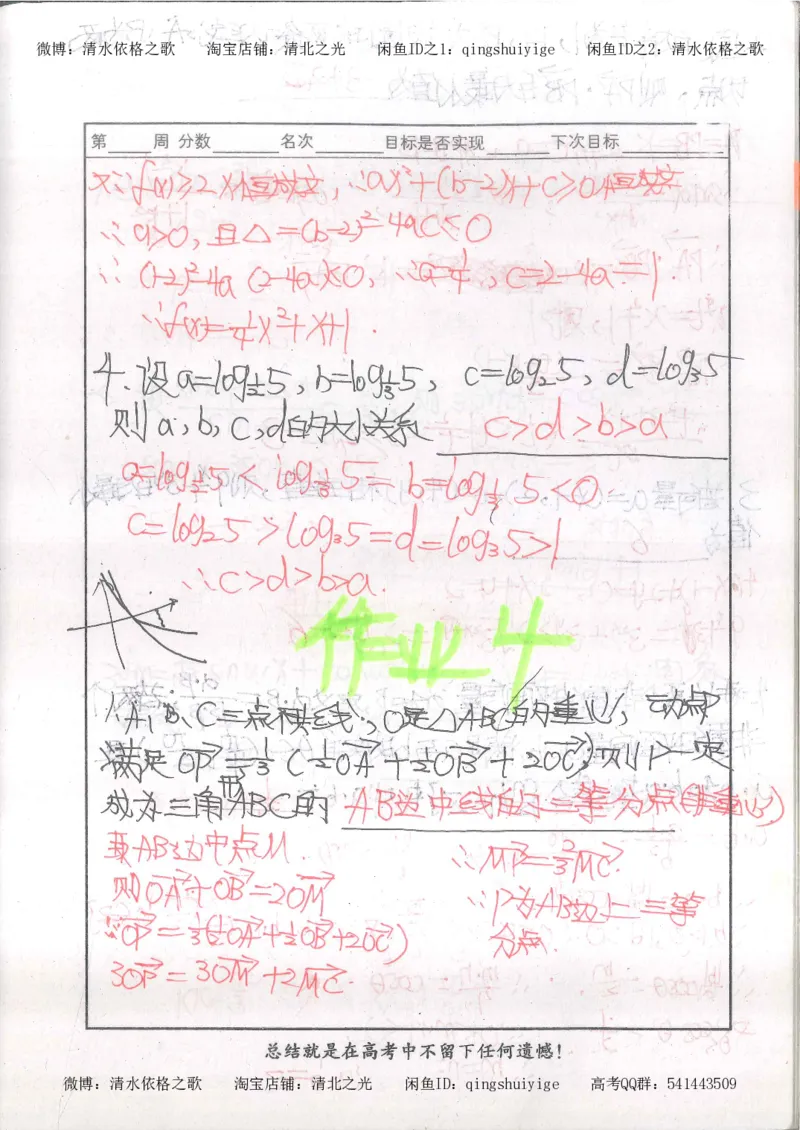 微博：清水依格之歌 淘宝店铺：清北之光 闲鱼ID之1：qingshuiyige 闲鱼ID之2：清水依格之歌
第____周 分数______名次______目标是否实现______下次目标______
又∵f(x)≥2x恒成立，∴ax²+(b-2)x+c≥0恒成立
∴a>0，且△=(b-2)²-4ac≤0
∴(1-2)²-4a(2-4a)≤0，∴a=1/4，c=2-4a=1.
∴f(x)=1/4x²+x+1.
4.设a=log_{1/2}5，b=log_{1/3}5，c=log₂5，d=log₃5
则a,b,c,d的大小关系 c>d>b>a
a=log_{1/2}5<log_{1/3}5=b=log_{1/3}5<0
c=log₂5>log₃5=d=log₃5>1
∴c>d>b>a.
作业4
1.A、B、C三点不共线，O是△ABC的重心，动点P
满足OP=1/3(1/2OA+1/2OB+2OC)，则P一定
成为三角形ABC的 AB边中线的三等分点(非重心)
取AB边中点M.
则OA+OB=2OM
∵OP=1/3(1/2OA+1/2OB+2OC)
3OP=3OM+2MC.
∴MP=2/3MC.
∴P为AB边上三等
分点.
总结就是在高考中不留下任何遗憾！
微博：清水依格之歌 淘宝店铺：清北之光 闲鱼ID：qingshuiyige 高考QQ群：541443509